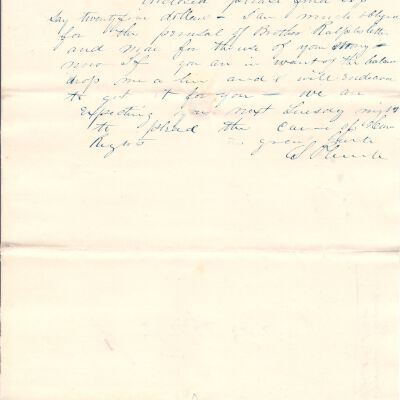 enclosed please find
Say twenty five dollars - I am much obliged
for the perusal of Brother Ralphs letter
and now for the use of your money -
now if you are in want of the balance
drop me a line and I will endeavor
to get it for you - We are
expecting you next Tuesday night
to plead the cause of
Rights - yours truly